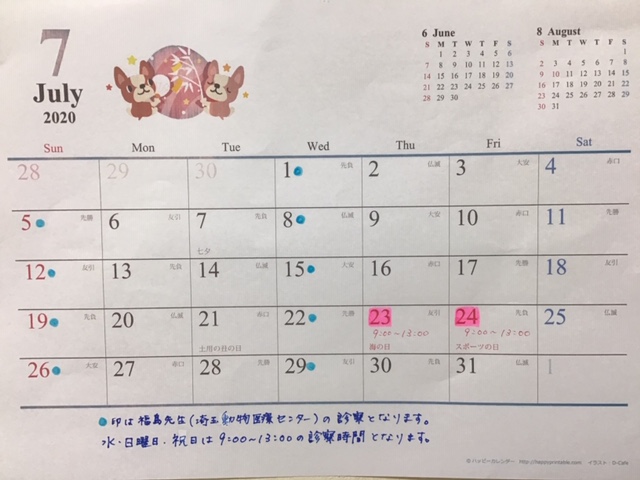 7
July
2020
6 June
S M T W T F S
1 2 3 4 5 6
7 8 9 10 11 12 13
14 15 16 17 18 19 20
21 22 23 24 25 26 27
28 29 30
8 August
S M T W T F S
1
2 3 4 5 6 7 8
9 10 11 12 13 14 15
16 17 18 19 20 21 22
23 24 25 26 27 28 29
30 31
Sun Mon Tue Wed Thu Fri Sat
28 29 30 1 先負 2 仏滅 3 大安 4 赤口
5 先勝 6 友引 7 先負 8 仏滅 9 大安 10 赤口 11 先勝
七夕
12 友引 13 先負 14 仏滅 15 大安 16 赤口 17 先勝 18 友引
19 先勝 20 仏滅 21 赤口 22 先勝 23 友引 24 先負 25 仏滅
9:00~13:00 9:00~13:00
土用の丑の日 海の日 スポーツの日
26 大安 27 赤口 28 先勝 29 友引 30 先負 31 仏滅 1
●印は福島先生(埼玉動物医療センター)の診察となります。
水・日曜日・祝日は9:00~13:00の診察時間となります。
© ハッピーカレンダー http://happyprintable.com イラスト:D-Cafe